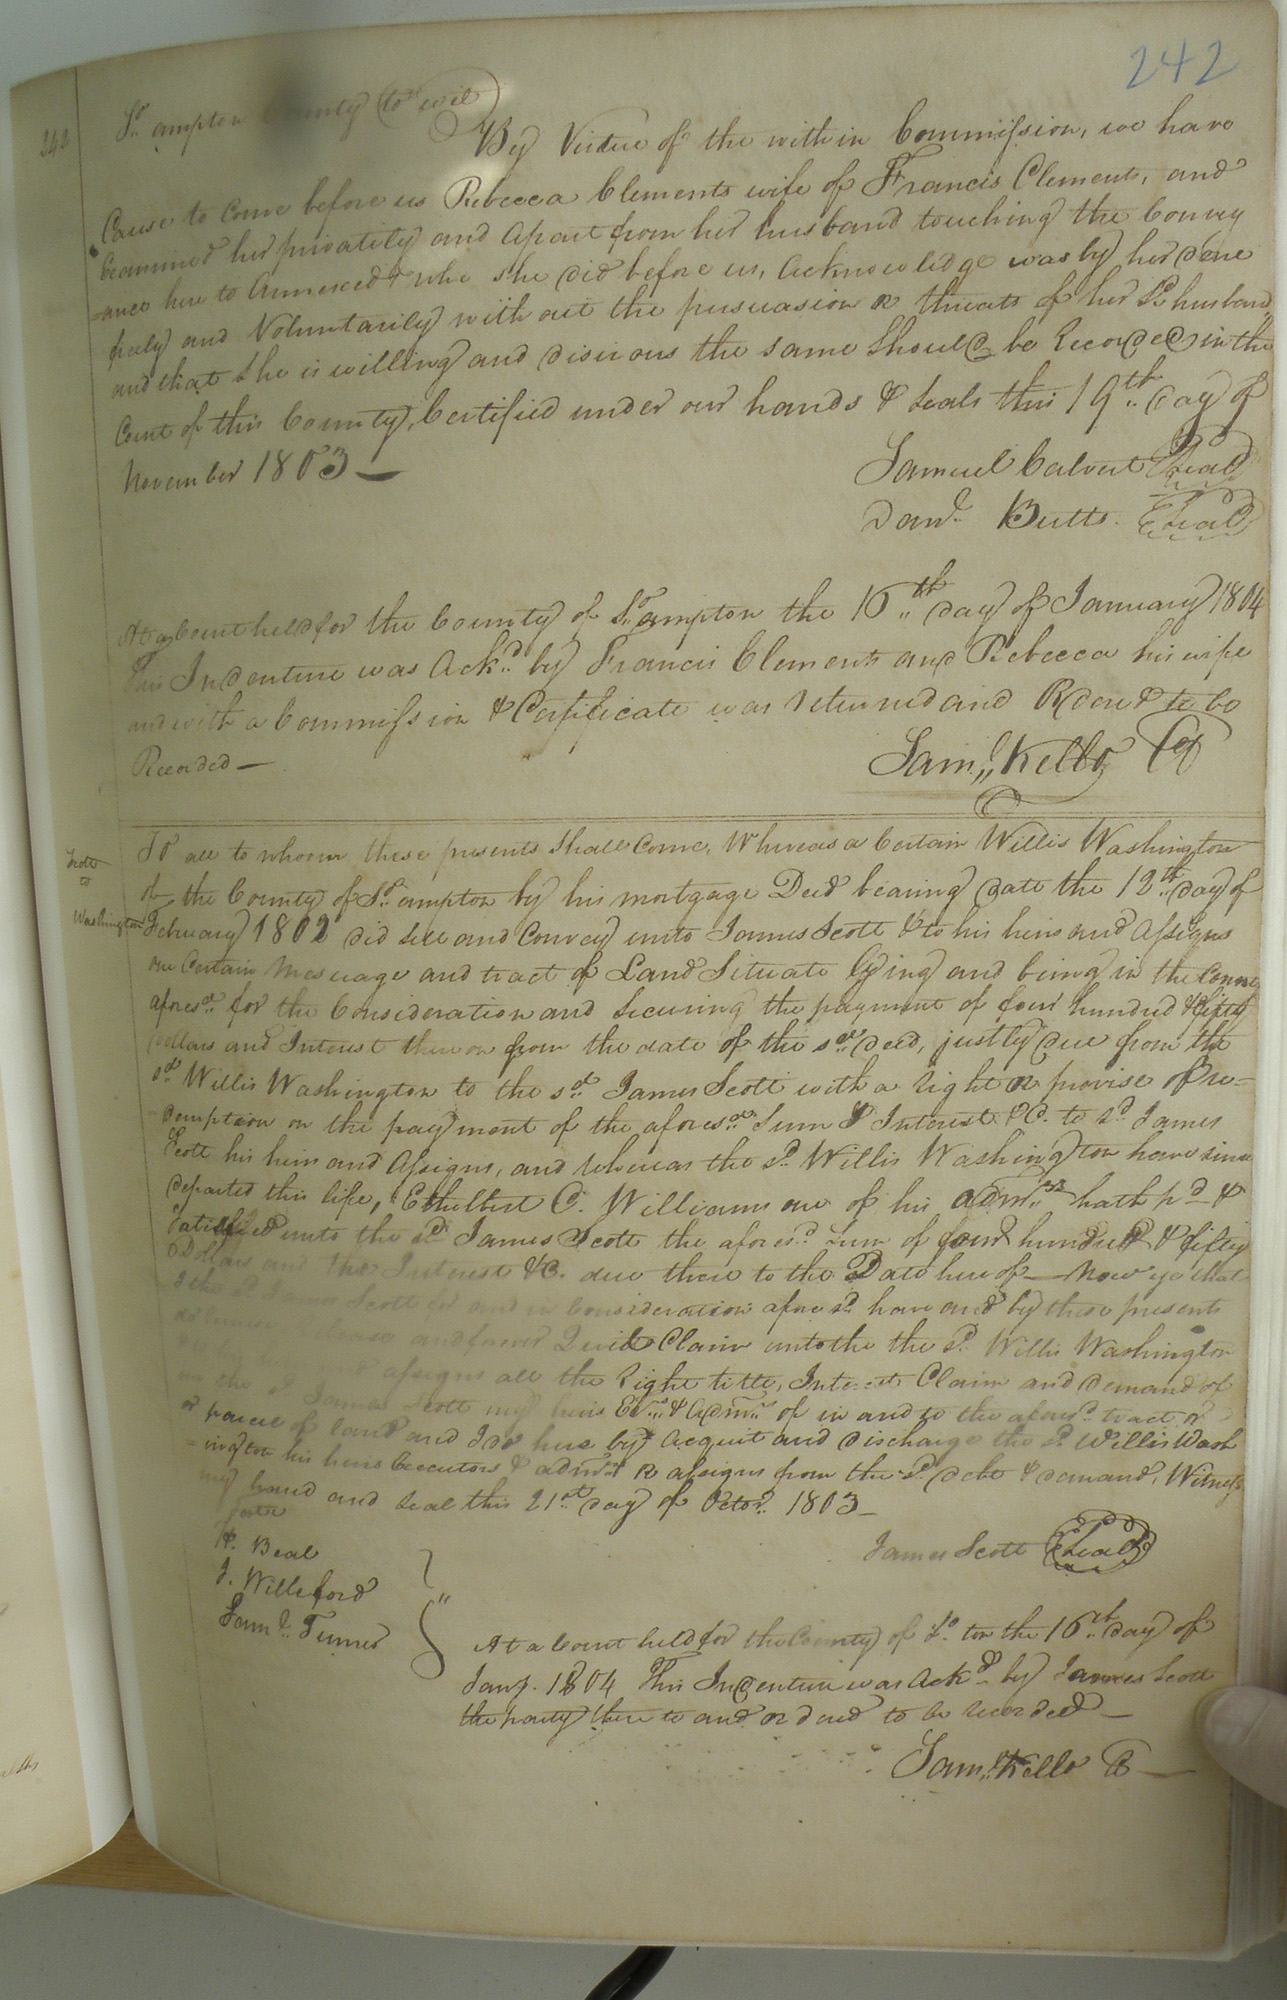 242
242
So. ampton County to wit
By Virtue of the within Commission, we have
Cause to come before us Rebecca Clements wife of Francis Clement, and
Examined her privately and apart from her husband touching the Convey
=ance here to Annexced & who she did before us, Acknowledge was by her done
freely and Voluntarily with out the persuasion or threats of her Sd husband,
and that She is willing and disirous the same Should be Recorded in the
Court of this County, Certified under our hands & Seals this 19th day of
November 1803 —
Samuel Calvert Seal
Danl. Butts. Seal
At a Court held for the County of So. ampton the 16th day of January 1804
This Indenture was Ackd. by Francis Clements and Rebecca his wife
and with a Commission & Certificate was returned and Rderd to be
Recorded —
Saml. Kello
Scott
to
Washington
To all to whoom these presents Shall Come, Whereas a Certain Willis Washington
of the County of So. ampton by his mortgage Deed bearing date the 12th day of
February 1802 did Sell and Convey unto James Scott & to his heirs and Assigns
one Certain Mesuage and tract of Land Situate lying and being in the County
aforesd. for the Consideration and Securing the payment of four hundred & fifty
dollars and Interest there on from the date of the sd. deed, justly due from the
sd. Willis Washington to the sd. James Scott with a right or provise of Re=
=demption on the payment of the aforesd. Sum & Interest &C. to sd. James
Scott his heirs and Assigns, and Whereas the sd. Willis Washington have since
departed this life, Ethelbert C. Williams one of his admrs. hath pd. &
Satisfied unto the sd. James Scott the aforesd. Sum of four hundred & fifty
Dollars and the Interest &C. due there to the Date here of — Now ye that
I the sd. James Scott for and in Consideration aforesd. have and by these presents
do release and forever Quit Claim unto the the sd. Willis Washington
assigns all the right title, Interest Claim and demand of
me the sd. James Scott my heirs Exrs. & Admrs. of in and to the aforesd. tract or
or parcel of land and I do here by Acquit and discharge the sd. Willis Wash
=ington his heirs Executors & admrs. or assigns from the sd. debt & demand, Witness
my hand and Seal this 21st day of Octor. 1803 —
James Scott Seal
Beal
J. Williford
Saml. Turner
At a Court held for the County of So. ton the 16th day of
Jany. 1804 This Indenture was Ackd. by James Scott
the party there to and ordered to be recorded —
Saml. Kello